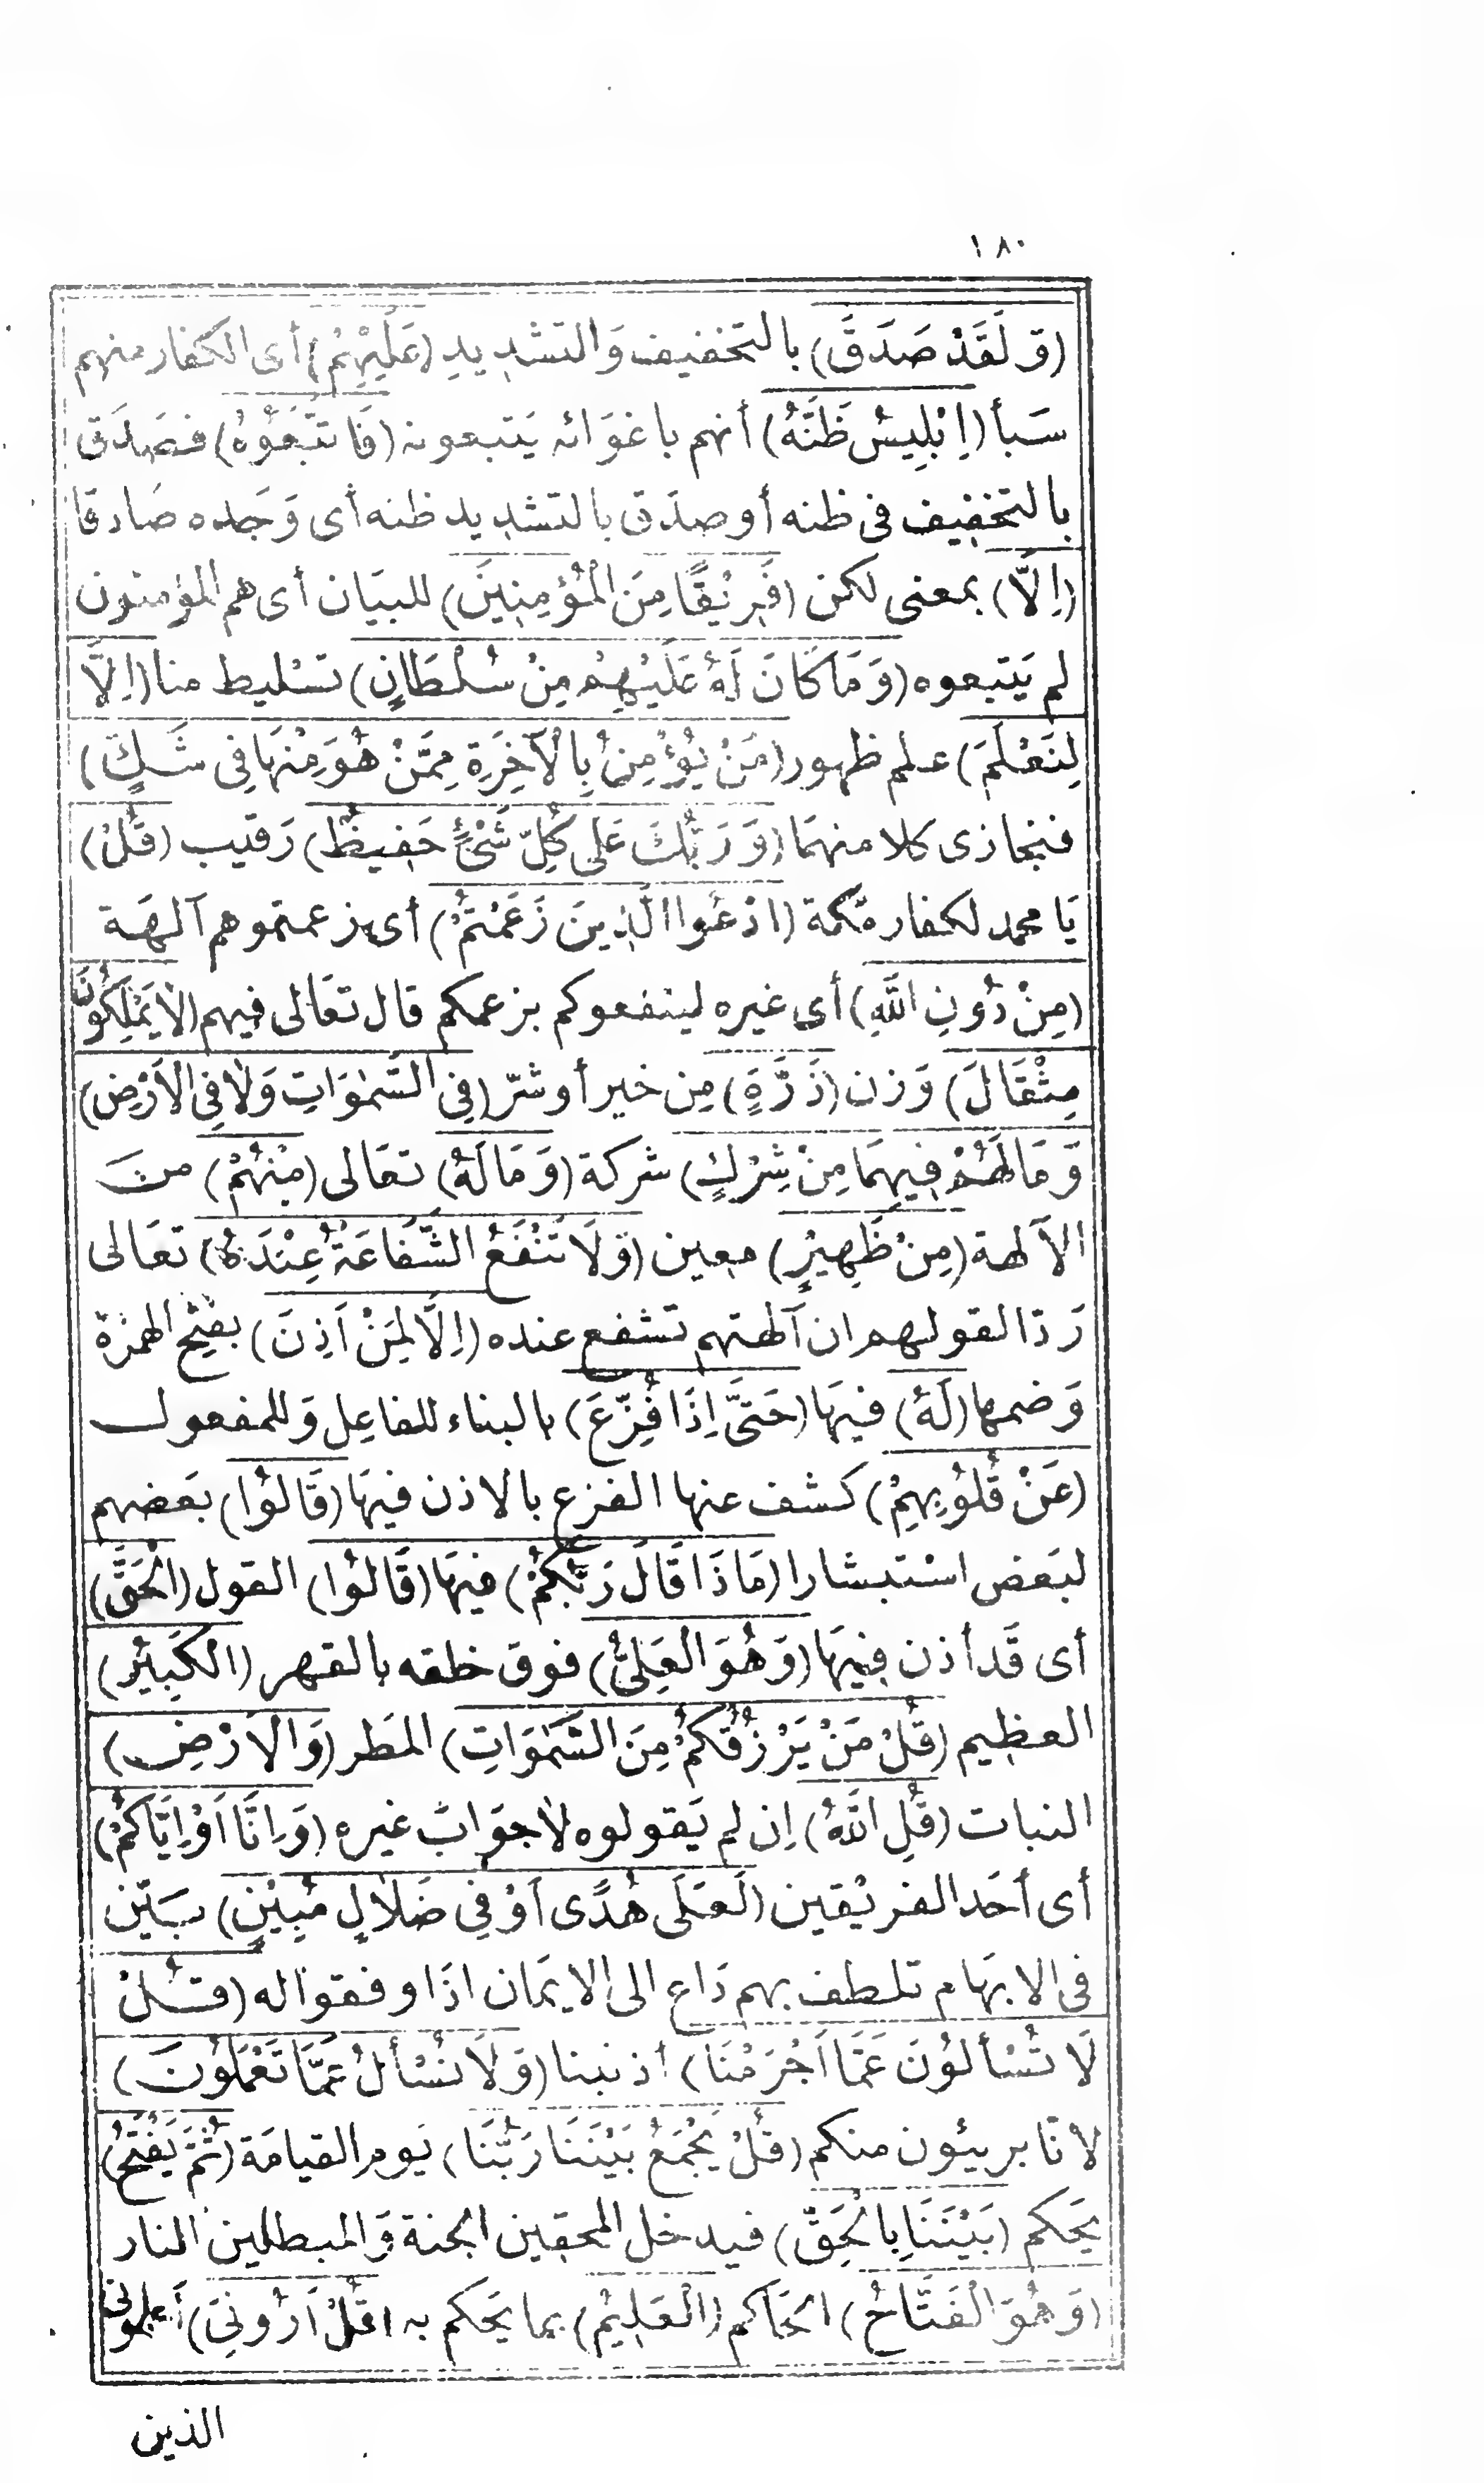 ١٨٠
(وَلَقَدْ صَدَقَ) بالتخفيف وَالتشديدِ (عَلَيْهِمْ) أى الكفار منهم
سَبأ (اِبْلِيسُ ظَنَّهُ) أنهم باغوَائه يَتبعونه (فَاتَّبَعُوْهُ) فصَدَق
بالتخفيف فى ظنه أو صدَّق بالتشديد ظنه أى وَجده صَادقا
(اِلَّا) بمعنى لكن (فَرِيْقًا مِنَ الْمُؤْمِنِينَ) للبيَان أى هم المؤمنون
لم يَتبعوه (وَمَا كَانَ لَهُ عَلَيْهِمْ مِنْ سُلْطَانٍ) تسْليط منا (اِلَّا
لِنَعْلَمَ) علم ظهور (مَنْ يُؤْمِنُ بِالْآخِرَةِ مِمَّنْ هُوَ مِنْهَا فِى شَكٍّ)
فنجازى كلا منهمَا (وَرَبُّكَ عَلى كُلِّ شَىْءٍ حَفِيظٌ) رَقيب (قُلْ)
يَا محمد لكفار مكة (ادْعُوا الَّذِينَ زَعَمْتُمْ) أى زعمتموهم آلهَة
(مِنْ دُوْنِ اللّٰهِ) أى غيره لينفعوكم بزعمكم قال تعَالى فيهم (لَا يَمْلِكُوْنَ
مِثْقَالَ) وَزن (ذَرَّةٍ) مِن خير أو شرّ (فِى السَّمٰوَاتِ وَلَا فِى الْاَرْضِ)
وَمَا لَهُمْ فِيهِمَا مِنْ شِرْكٍ) شركة (وَمَا لَهُ) تعَالى (مِنْهُمْ) منَ
الآلهة (مِنْ ظَهِيْرٍ) معين (وَلَا تَنْفَعُ الشَّفَاعَةُ عِنْدَهُ) تعَالى
رَدّا لقولهم ان آلهتهم تشفع عنده (اِلَّا لِمَنْ اَذِنَ) بفتح الهمزة
وَضمها (لَهُ) فيهَا (حَتَّى اِذَا فُزِّعَ) بالبناء للفاعِل وَللمفعول
(عَنْ قُلُوْبِهِمْ) كشف عنها الفزع بالاذن فيهَا (قَالُوْا) بعَضهم
لبعَض استبشارا (مَاذَا قَالَ رَبُّكُمْ) فيهَا (قَالُوْا) القول (الْحَقَّ)
أى قَد أذن فِيهَا (وَهُوَ الْعَلِىُّ) فوق خلقه بالقهر (الْكَبِيْرُ)
العظيم (قُلْ مَنْ يَرْزُقُكُمْ مِنَ السَّمٰوَاتِ) المَطر (وَالْاَرْضِ)
النبات (قُلِ اللَّهُ) اِن لم يَقولوه لا جوَابَ غيره (وَاِنَّا اَوْ اِيَّاكُمْ)
أى أحَد الفريْقين (لَعَلَى هُدًى اَوْ فِى ضَلَالٍ مُبِيْنٍ) بَيّن
فى الابهَام تلطف بهم دَاع الى الايمَان اذَا وفقوا له (قُلْ
لَا تُسْألُوْنَ عَمَّا اَجْرَمْنَا) أذنبنا (وَلَا نُسْألُ عَمَّا تَعْمَلُوْنَ)
لانّا بريئون منكم (قُلْ يَجْمَعُ بَيْنَنَا رَبُّنَا) يَوم القيامَة (ثُمَّ يَفْتَحُ)
يَحكم (بَيْنَنَا بِالْحَقِّ) فيدخل المحقين الجنة وَالمبطلين النار
(وَهُوَ الْفَتَّاحُ) الحَاكم (الْعَلِيْمُ) بما يَحكم به (قُلْ اَرُوْنِىَ) أعلمونى
الذين